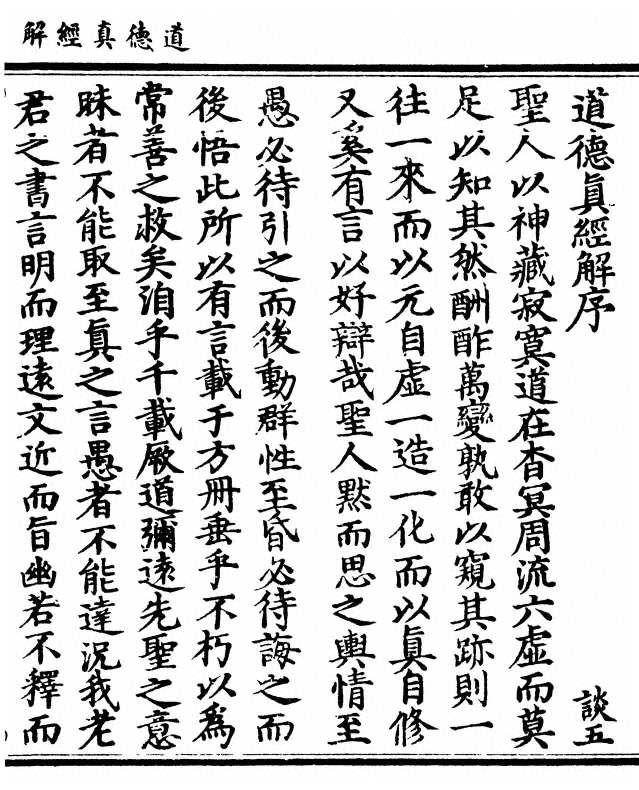 道德真經解
道德眞經解序
談五
聖人以神藏寂寞道在杳冥周流六虛而莫
足以知其然酬酢萬變孰敢以窺其跡則一
往一來而以元自虛一造一化而以眞自修
又奚有言以好辯哉聖人默而思之輿情至
愚必待引之而後動群性至昏必待誨之而
後悟此所以有言載于方冊垂乎不朽以爲
常善之救矣洎乎千載厥道彌遠先聖之意
昧者不能取至眞之言愚者不能達況我老
君之書言明而理遠文近而旨幽若不釋而